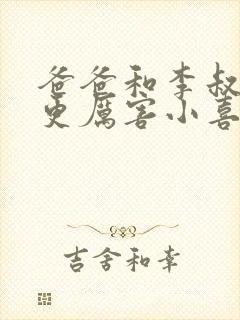 爸爸和李叔
更厲害小喜
吉舍和幸